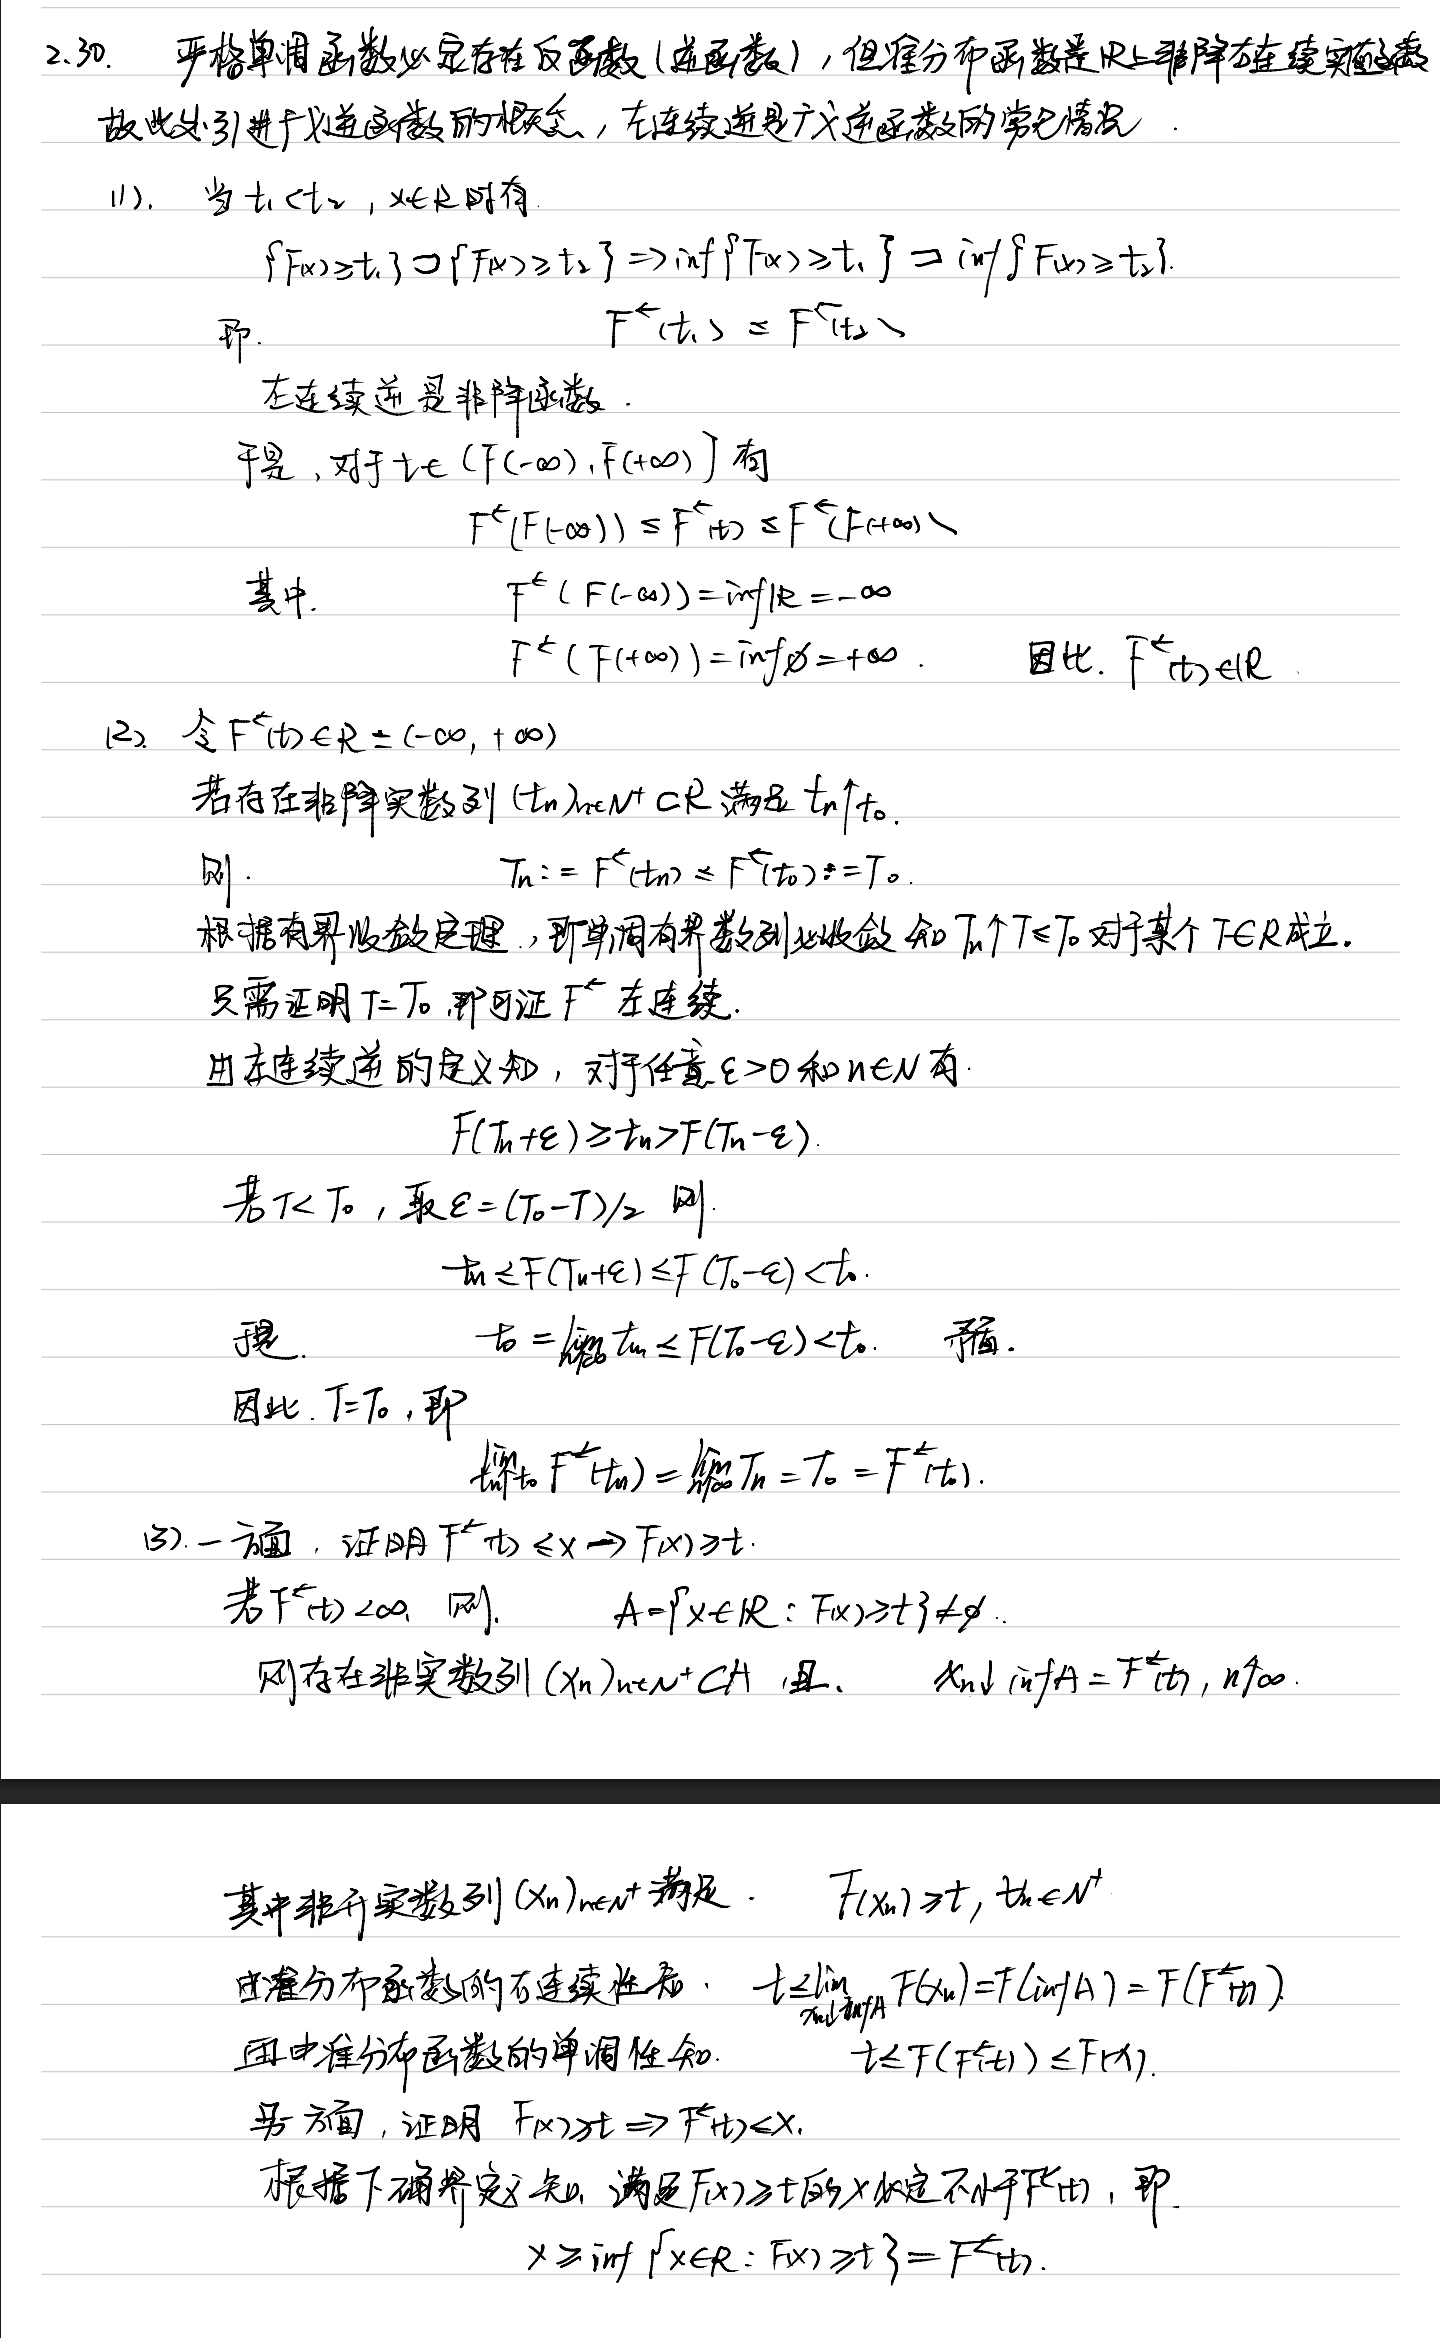 2.30. 严格单调函数必定存在反函数(逆函数),但准分布函数是R上非降右连续实值函数
故此处引进广义逆函数的概念,左连续逆是广义逆函数的常见情况.
(1). 当 t₁<t₂, x∈R时有.
{F(x)≥t₁}⊃{F(x)≥t₂}⇒inf{F(x)≥t₁}⊃inf{F(x)≥t₂}.
即. F^←(t₁) ≤ F^←(t₂)
左连续逆是非降函数.
于是,对于t∈(F(-∞),F(+∞)]有
F^←(F(-∞)) ≤ F^←(t) ≤ F^←(F(+∞))
其中. F^←(F(-∞))=infR=-∞
F^←(F(+∞))=inf∅=+∞. 因此. F^←(t)∈R.
(2). 令F^←(t)∈R=(-∞,+∞)
若存在非降实数列(tn)n∈N⁺⊂R满足tn↑t₀.
则. Tn:=F^←(tn) ≤ F^←(t₀):=T₀.
根据有界收敛定理,即单调有界数列必收敛知Tn↑T≤T₀对于某个T∈R成立.
只需证明T=T₀,即可证F^←左连续.
由左连续逆的定义知,对于任意ε>0和n∈N有.
F(Tn+ε)≥tn>F(Tn-ε).
若T<T₀,取ε=(T₀-T)/2 则.
tn≤F(Tn+ε)≤F(T₀-ε)<t₀.
于是. t₀=lim n↑∞ tn≤F(T₀-ε)<t₀. 矛盾.
因此.T=T₀,即
lim tn↑t₀ F^←(tn)=lim n↑∞ Tn=T₀=F^←(t₀).
(3).一方面,证明F^←(t)≤x→F(x)≥t.
若F^←(t)<∞, 则. A={x∈R:F(x)≥t}≠∅.
则存在非实数列(xn)n∈N⁺⊂A,且. xn↓infA=F^←(t),n↑∞.
其中非升实数列(xn)n∈N⁺满足. F(xn)≥t,∀n∈N⁺
由准分布函数的右连续性知. t≤lim xn↓infA F(xn)=F(infA)=F(F^←(t)).
由准分布函数的单调性知. t≤F(F^←(t))≤F(x).
另一方面,证明 F(x)≥t⇒F^←(t)≤x.
根据下确界定义知,满足F(x)≥t的x必定不小于F^←(t),即.
x≥inf{x∈R:F(x)≥t}=F^←(t).